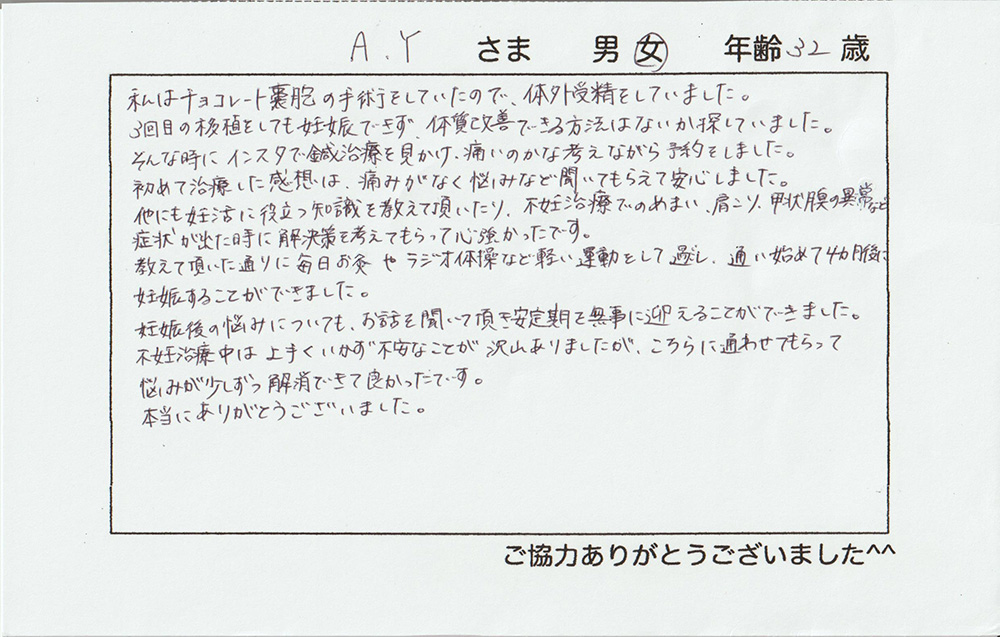 A.Y さま 男 女 年齢 32 歳
私はチョコレート嚢胞の手術をしていたので、体外受精をしていました。
3回目の移植をしても妊娠できず、体質改善できる方法はないか探していました。
そんな時にインスタで鍼治療を見かけ、痛いのかな考えながら予約をしました。
初めて治療した感想は、痛みがなく悩みなど聞いてもらえて安心しました。
他にも妊活に役立つ知識を教えて頂いたり、不妊治療でのめまい、肩こり、甲状膜の異常など
症状が出た時に解決策を考えてもらって心強かったです。
教えて頂いた通りに毎日お灸やラジオ体操など軽い運動をして過ごし、通い始めて4カ月後に
妊娠することができました。
妊娠後の悩みについても、お話を聞いて頂き安定期を無事に迎えることができました。
不妊治療中は上手くいかず不安なことが沢山ありましたが、こちらに通わせてもらって
悩みが少しずつ解消できて良かったです。
本当にありがとうございました。
ご協力ありがとうございました^^